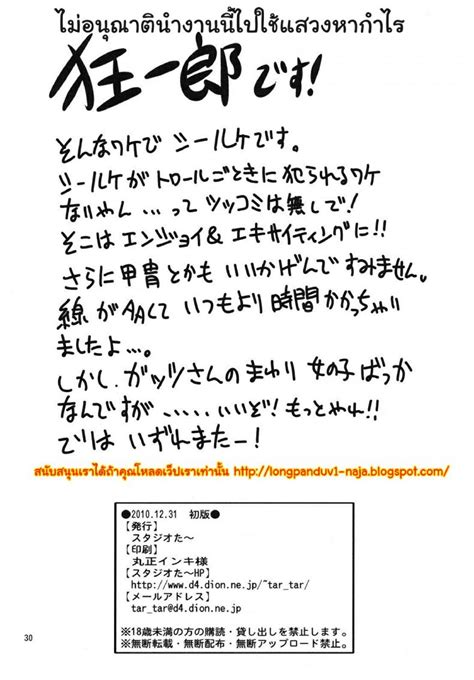 ไม่อนุญาตินำงานนี้ไปใช้แสวงหากำไร
狂一郎です!
そんなワケで シールケです。
シールケが トロールごときに 犯られるワケ
ないやん…って ツッコミは無しで!
そこは エンジョイ& エキサイティングに!!
さらに甲冑とかも いいかげんで すみません。
線が AAくて いつもより 時間 かかっちゃい
ましたよ…。
しかし、ガッツさんの まわり 女の子 ばっか
なんですが ・・・・、いいぞ! もっとやれ!!
では いずれまたー!
สนับสนุนเราได้ถ้าคุณโหลดเว็ปเราเท่านั้น http://longpanduv1-naja.blogspot.com/
●2010.12.31 初版●
【発行】
スタジオた~
【印刷】
丸正インキ様
【スタジオた~HP】
http://www.d4.dion.ne.jp/~tar_tar/
【メールアドレス】
tar_tar@d4.dion.ne.jp
※18歳未満の方の購読・貸し出しを禁止します。
※無断転載・無断配布・無断アップロード禁止。
30